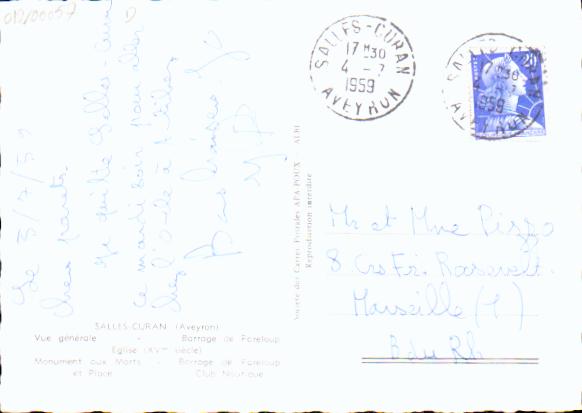 012/00057
D
Le 3/7/59
chers parents.
Je quitte Salles-Curan
ce mardi soir pour aller
Bons baisers
SALLES-CURAN (Aveyron)
Vue générale - Barrage de Pareloup
Eglise (XVme siècle)
Monument aux Morts - Barrage de Pareloup
et Place Club Nautique
Société des Cartes Postales APA-POUX ALBI
Reproduction interdite
SALLES-CURAN
17 H 30
4 - 7
1959
AVEYRON
SALLES-CURAN
17 H 30
1959
AVEYRON
20
Mr et Mme Pizzo
8 Crs Fr. Roosevelt.
Marseille (1)
B du Rh